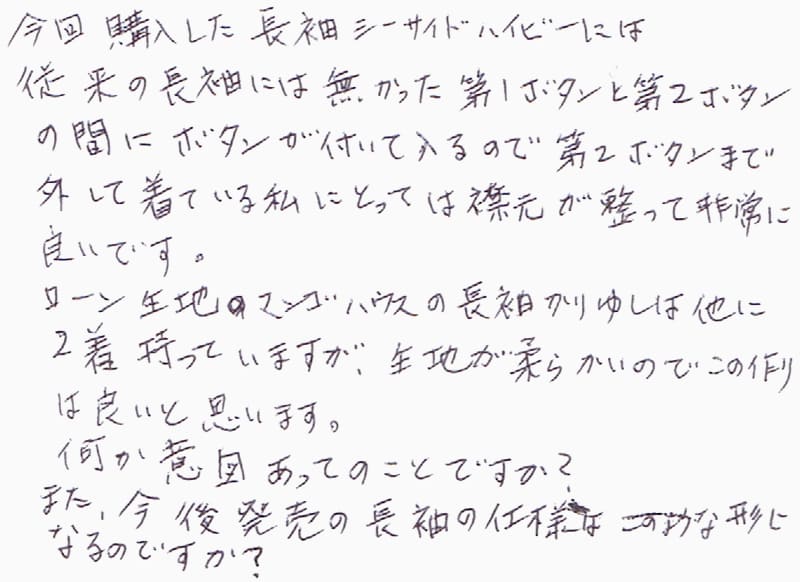 今回購入した長袖シーサイドハイビーには
従来の長袖には無かった第1ボタンと第2ボタン
の間にボタンが付いて入るので第2ボタンまで
外して着ている私にとっては襟元が整って非常に
良いです。
ローン生地のマンゴハウスの長袖かりゆしは他に
2着持っていますが、生地が柔らかいのでこの作り
は良いと思います。
何か意図あってのことですか?
また、今後発売の長袖の仕様はこのような形に
なるのですか?